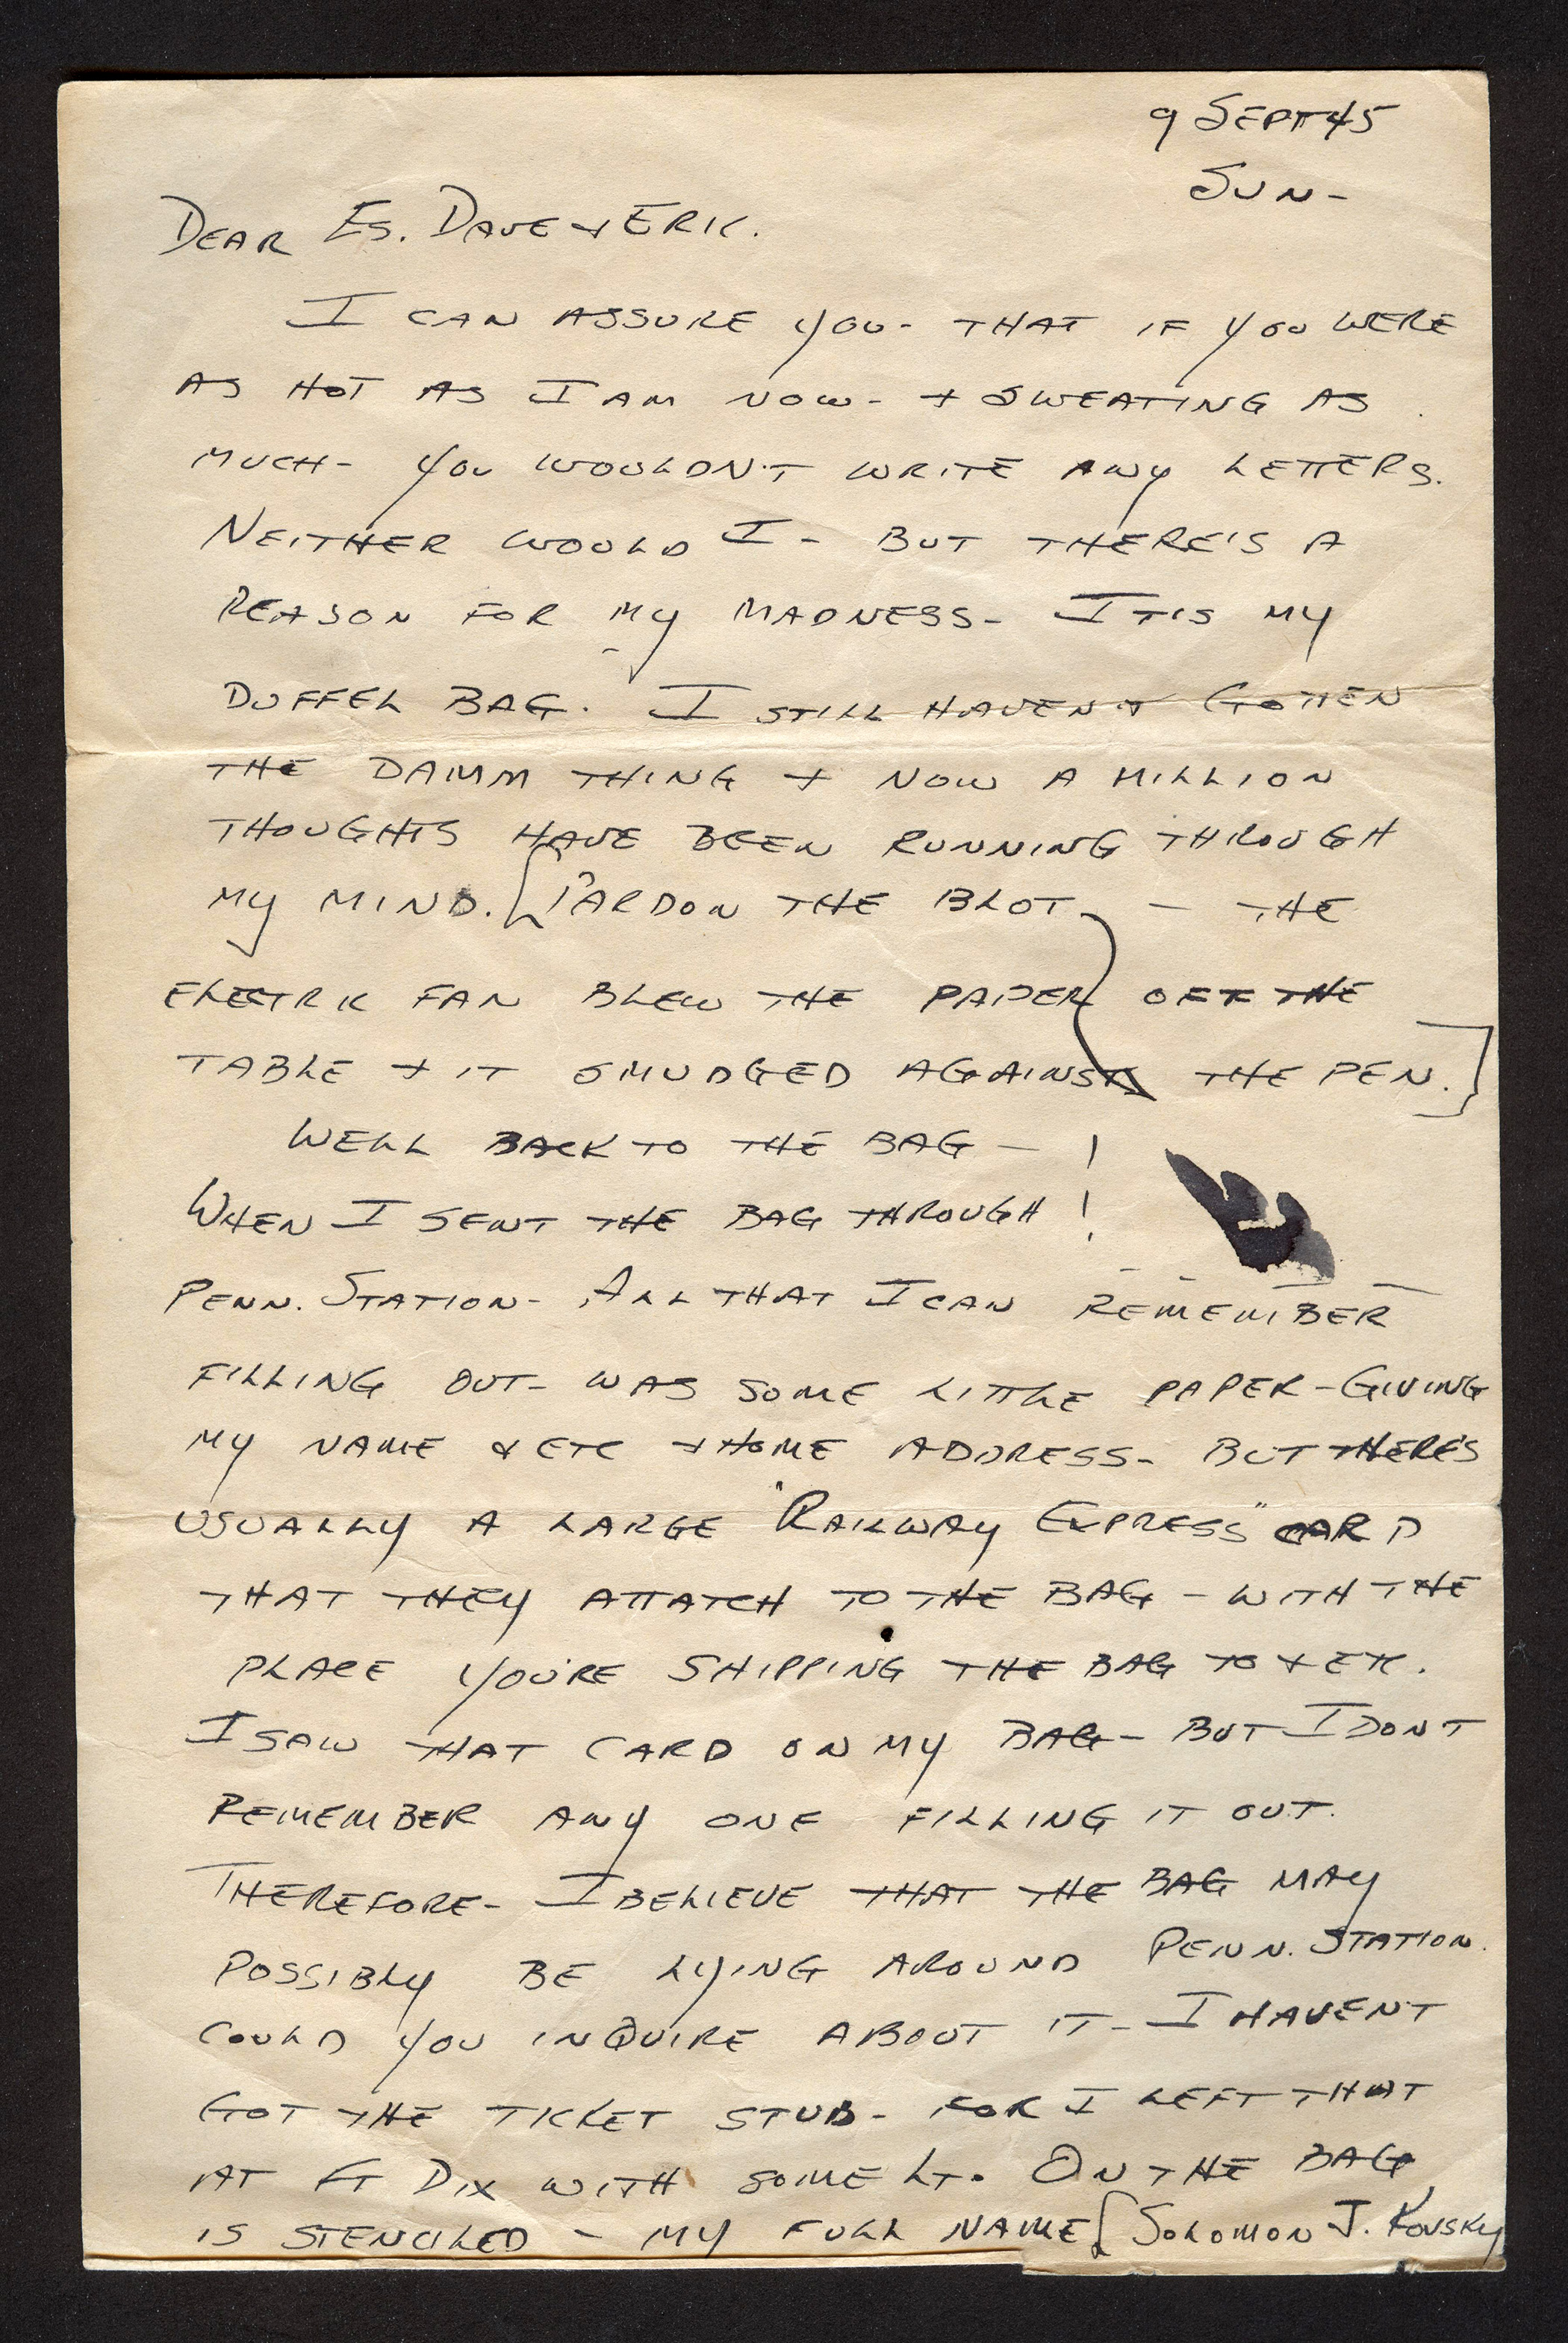 9 SEPT 45
SUN-
DEAR ES. DAVE + ERIC.
I CAN ASSURE YOU- THAT IF YOU WERE
AS HOT AS I AM NOW- + SWEATING AS
MUCH- YOU WOULDN'T WRITE ANY LETTERS.
NEITHER WOULD I- BUT THERE'S A
REASON FOR MY MADNESS- IT IS MY
DUFFEL BAG. I STILL HAVEN'T GOTTEN
THE DAMM THING + NOW A MILLION
THOUGHTS HAVE BEEN RUNNING THROUGH
MY MIND. [PARDON THE BLOT - THE
ELECTRIC FAN BLEW THE PAPER OFF THE
TABLE + IT SMUDGED AGAINST THE PEN.]
WELL BACK TO THE BAG - !
WHEN I SENT THE BAG THROUGH !
PENN. STATION- ALL THAT I CAN REMEMBER
FILLING OUT- WAS SOME LITTLE PAPER-GIVING
MY NAME & ETC + HOME ADDRESS- BUT THERE'S
USUALLY A LARGE "RAILWAY EXPRESS" CARD
THAT THEY ATTATCH TO THE BAG - WITH THE
PLACE YOU'RE SHIPPING THE BAG TO + ETC.
I SAW THAT CARD ON MY BAG- BUT I DONT
REMEMBER ANY ONE FILLING IT OUT.
THEREFORE- I BELIEVE THAT THE BAG MAY
POSSIBLY BE LYING AROUND PENN. STATION.
COULD YOU INQUIRE ABOUT IT- I HAVENT
GOT THE TICKET STUB- FOR I LEFT THAT
AT FT DIX WITH SOME LT. ON THE BAG
IS STENCILED - MY FULL NAME [SOLOMON J. KOVSKY